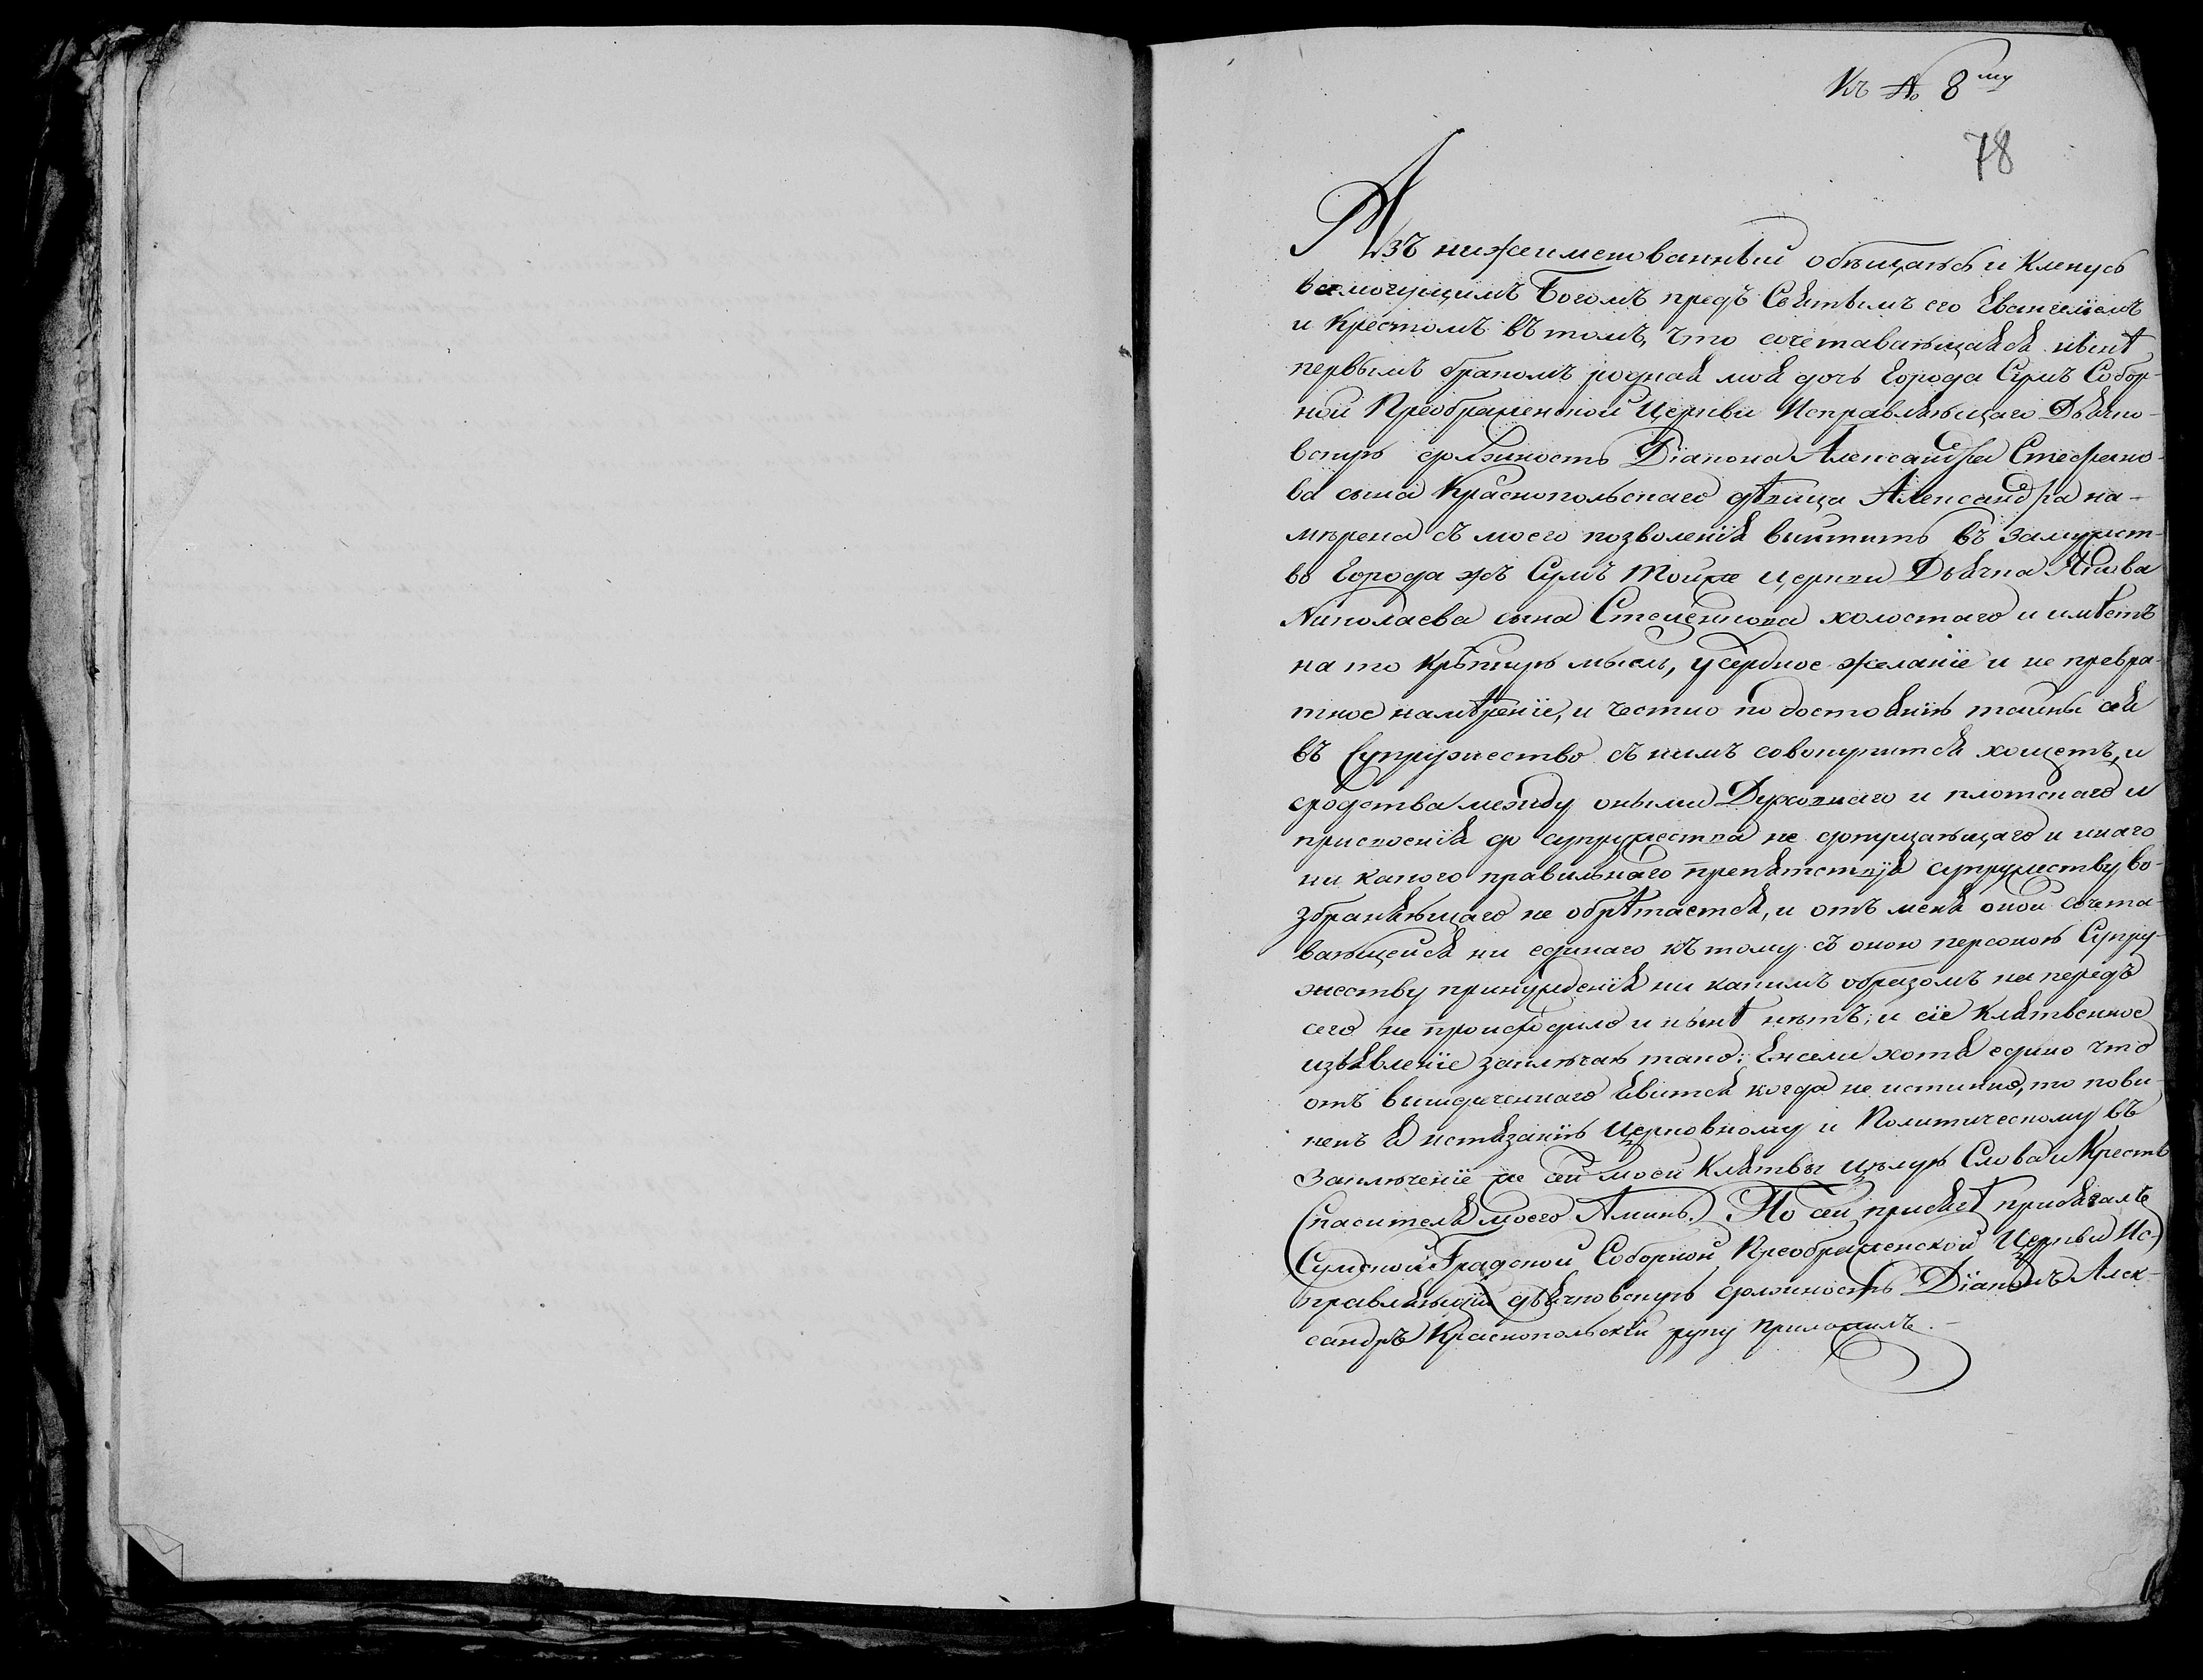 Къ № 8му
78
Азъ нижеименованный обѣщаюсь и кленусь
всемогущимъ Богомъ предъ Святымъ его Евангелїемъ
и крестомъ въ томъ, что сочетавающаяся нынѣ
первымъ бракомъ родная моя дочь Города Сумъ Собор-
ной Преображенской Церкви Исправляющаго Дьячко-
вскую должность Дїакона Александра Стефано-
ва сына Краснопольскаго дѣвица Александра на-
мѣрена съ моего позволенїя вынтить въ замужст-
во Города жъ Сумъ Тойже церкви Дьячка Якова
Николаева сына Стеценкова холостаго и имѣетъ
на то крѣпкую мысль, усердное желанїе и не превра-
тное намѣренїе, и честно по достоянїю тайны сея
въ Супружество съ нимъ совокупится хощетъ, и
сродства между оными Духовнаго и плотскаго и
присвоенїя до супружества не допущающаго и инаго
ни какого правильнаго препятствїя супружеству во-
збраняющаго не обрѣтается, и отъ меня оной сочета-
вающейся ни единаго къ тому съ оною персоною Супру-
жеству принужденїя ни какимъ образомъ на передъ
сего не происходило и нынѣ нѣтъ; и сїе клятвенное
изъявленїе заключаю тако: Ежели хотя едино что
отъ вышереченнаго явится когда не истинно, то пови-
ненъ я истязанїю Церковному и Политическому въ
Заключенїе же сей моей клятвы цѣлую Слова и Крестъ
Спасителя моего Аминь. По сей присягѣ присягалъ
Сумской Градской Соборной Преображенской Церкви Ис-
правляющїй дьячковскую должность Дїаконъ Алек-
сандръ Краснопольскїй руку приложилъ.